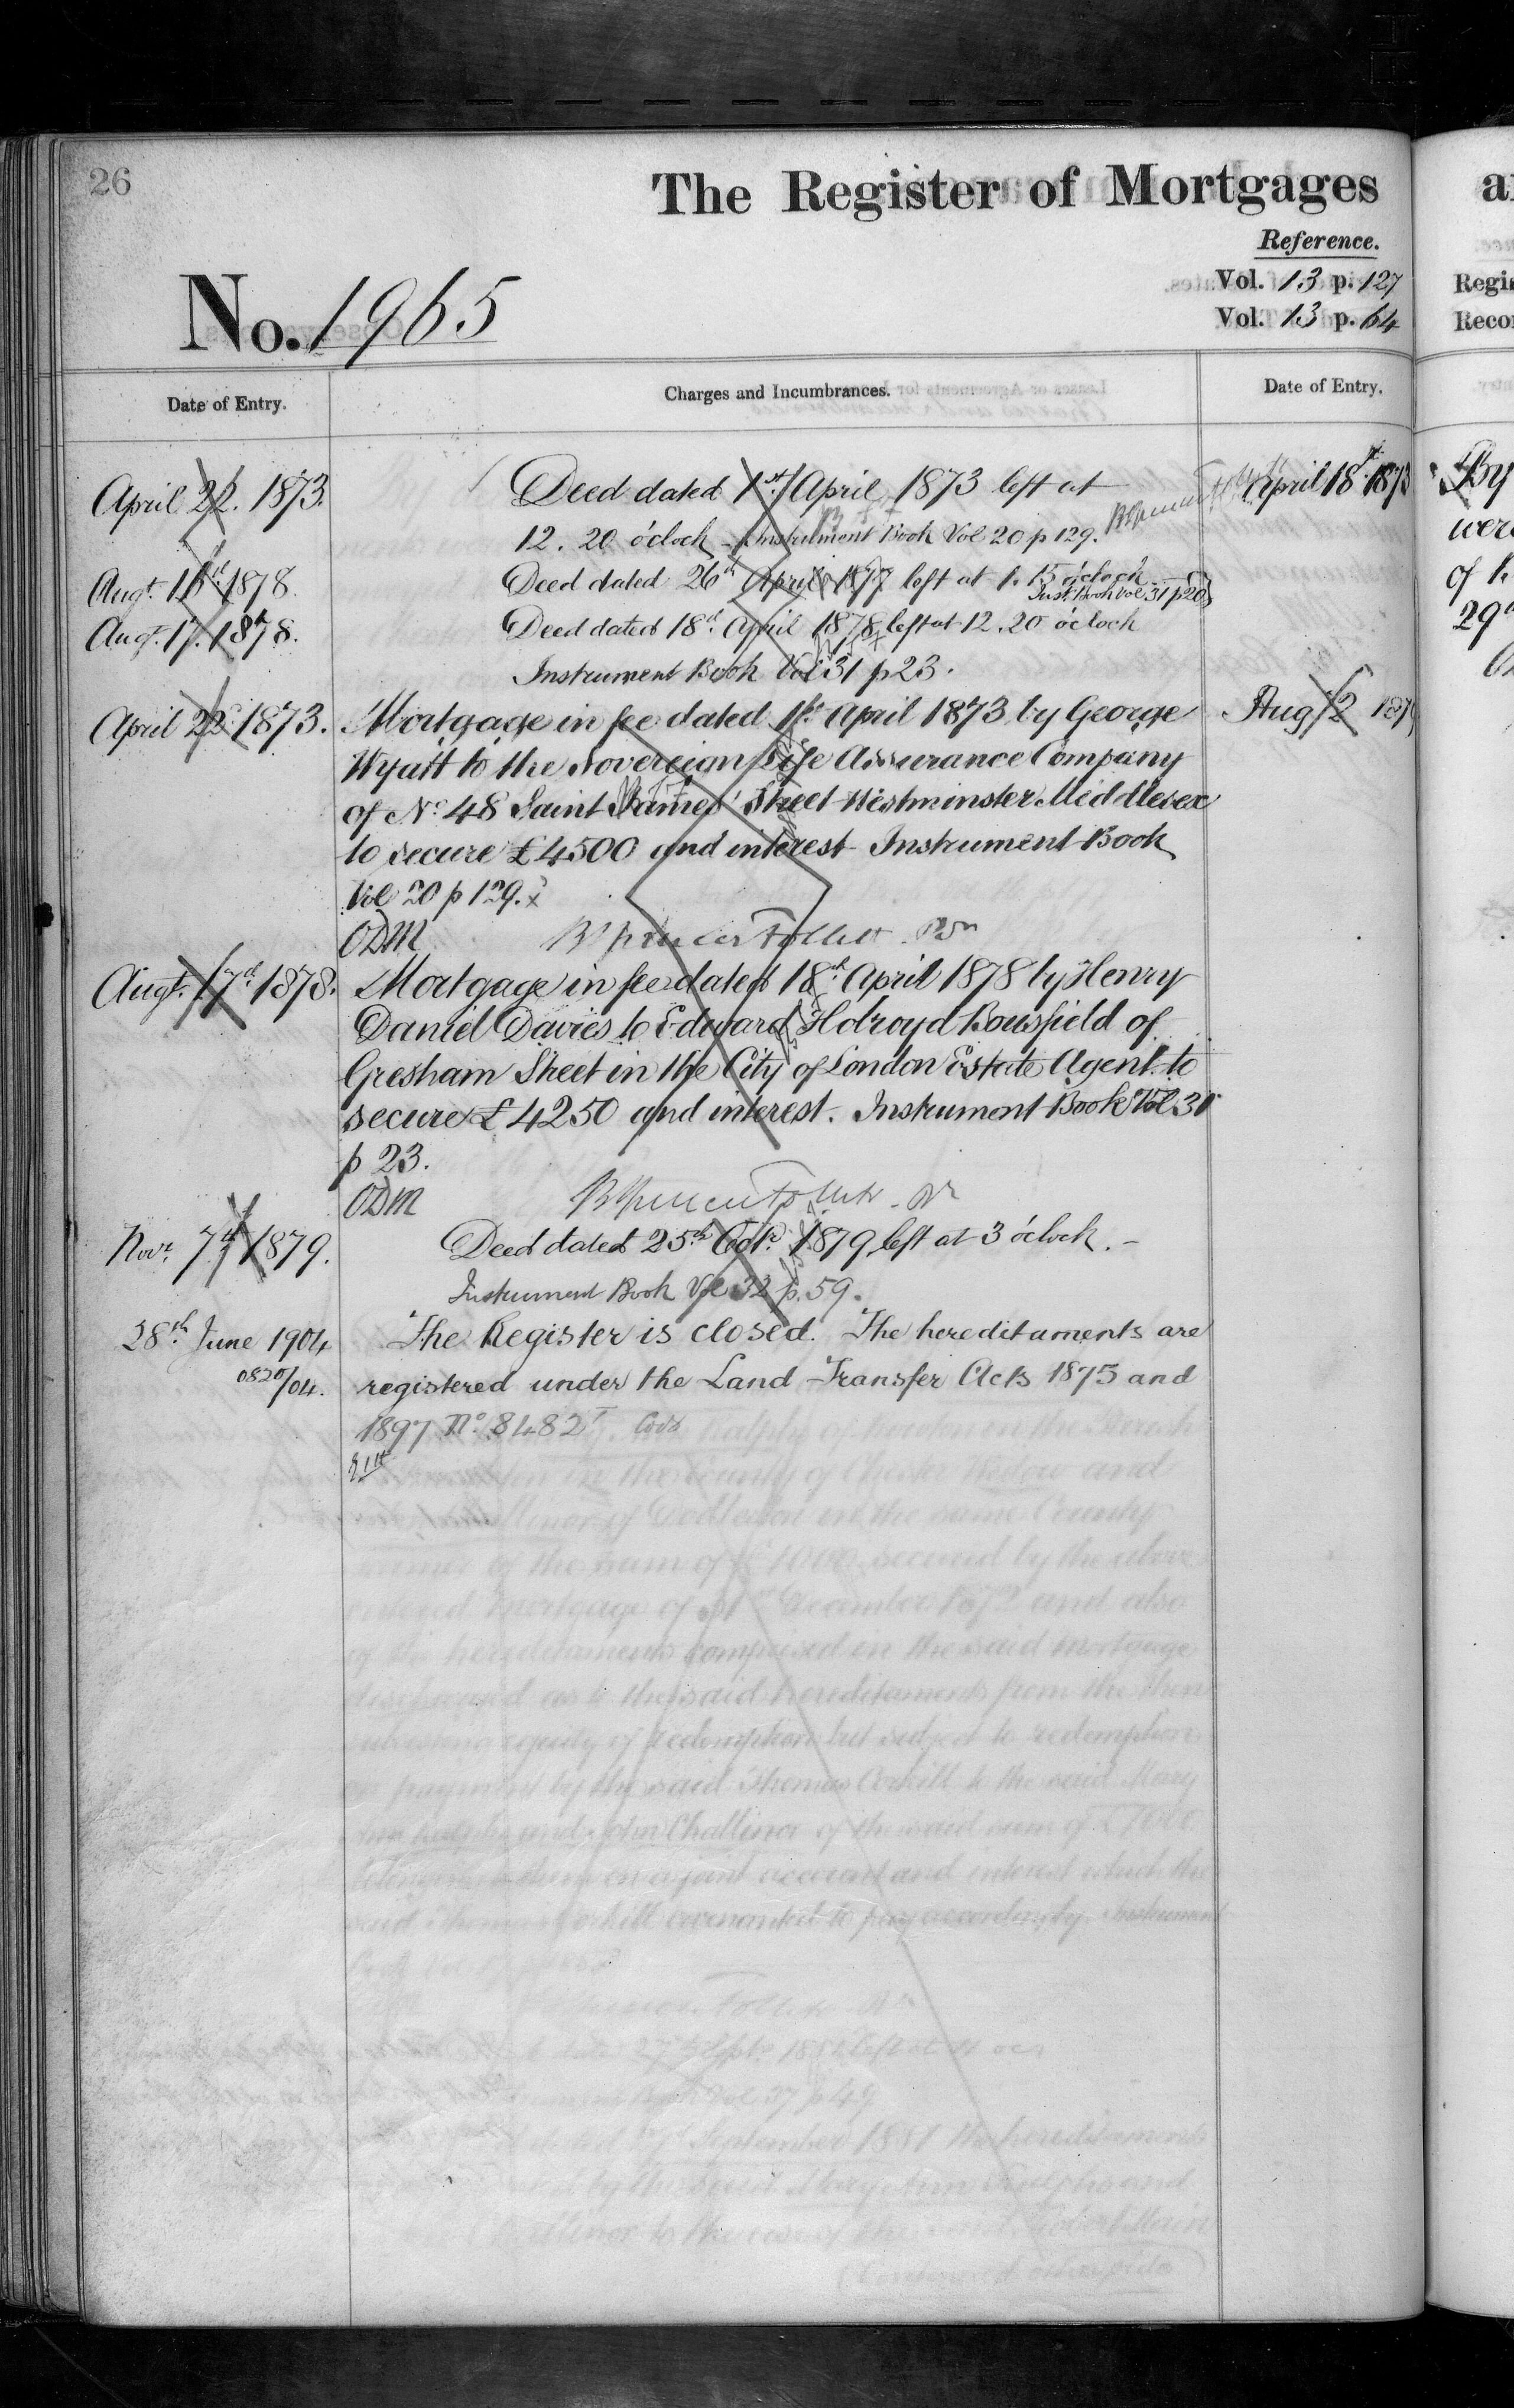 26
The Register of Mortgages
Reference.
Vol. 13 p. 127
Vol. 13 p. 64
No. 1965
Date of Entry.
Charges and Incumbrances.
Date of Entry.
April 22. 1873.
Deed dated 1st April 1873 left at
April 18th 1873
12. 20 o'clock - Instrument Book Vol 20 p 129.
Augt. 16th 1878.
Deed dated 26th April 1877 left at 1. 15 o'clock
Inst. Book Vol 31 p 20
Augt. 17th 1878.
Deed dated 18th April 1878 left at 12. 20 o'clock
Instrument Book Vol 31 p 23.
April 22 1873.
Mortgage in fee dated 1st April 1873 by George
Aug 2 187
Wyatt to the Sovereign Life Assurance Company
of No. 48 Saint James' Street Westminster Middlesex
to secure £4500 and interest Instrument Book
Vol 20 p 129.
ODM
B Spencer Follett
Augt. 17th 1878.
Mortgage in fee dated 18th April 1878 by Henry
Daniel Davies to Edward Holroyd Bousfield of
Gresham Street in the City of London Estate Agent to
secure £4250 and interest. Instrument Book Vol 31
p 23.
ODM
B Spencer Follett
Novr. 7th 1879.
Deed dated 25th Octr. 1879 left at 3 o'clock. -
Instrument Book Vol 32 p. 59.
28th June 1904
The Register is closed. The hereditaments are
0820/04.
registered under the Land Transfer Acts 1875 and
1897 No. 8482
a
Regis
Reco
By
were
of
29